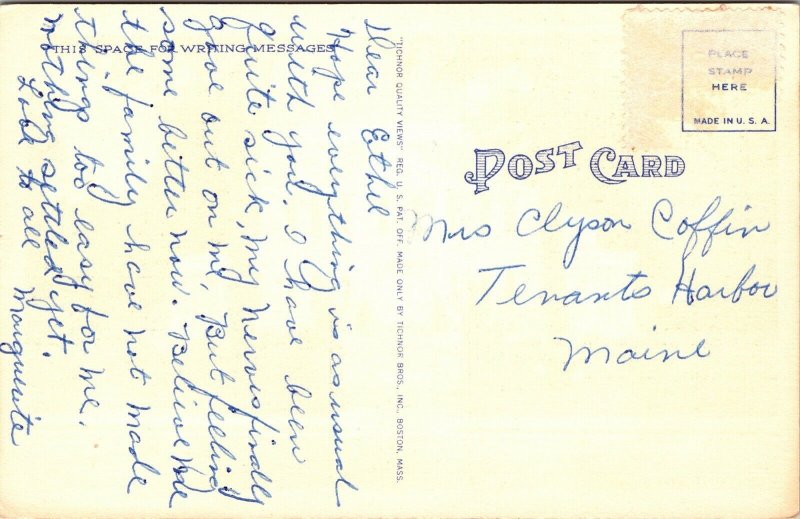 THIS SPACE FOR WRITING MESSAGES
Dear Ethel
Hope everything is as usual
with you. I have been
quite sick, my nerves finally
gave out on me, But feeling
some better now. Believe me
the family have not made
things too easy for me.
nothing settled yet.
Love to all
Marguerite
"TICHNOR QUALITY VIEWS" REG. U. S. PAT. OFF. MADE ONLY BY TICHNOR BROS., INC., BOSTON, MASS.
PLACE
STAMP
HERE
MADE IN U. S. A.
POST CARD
Mrs Clyson Coffin
Tenants Harbor
Maine